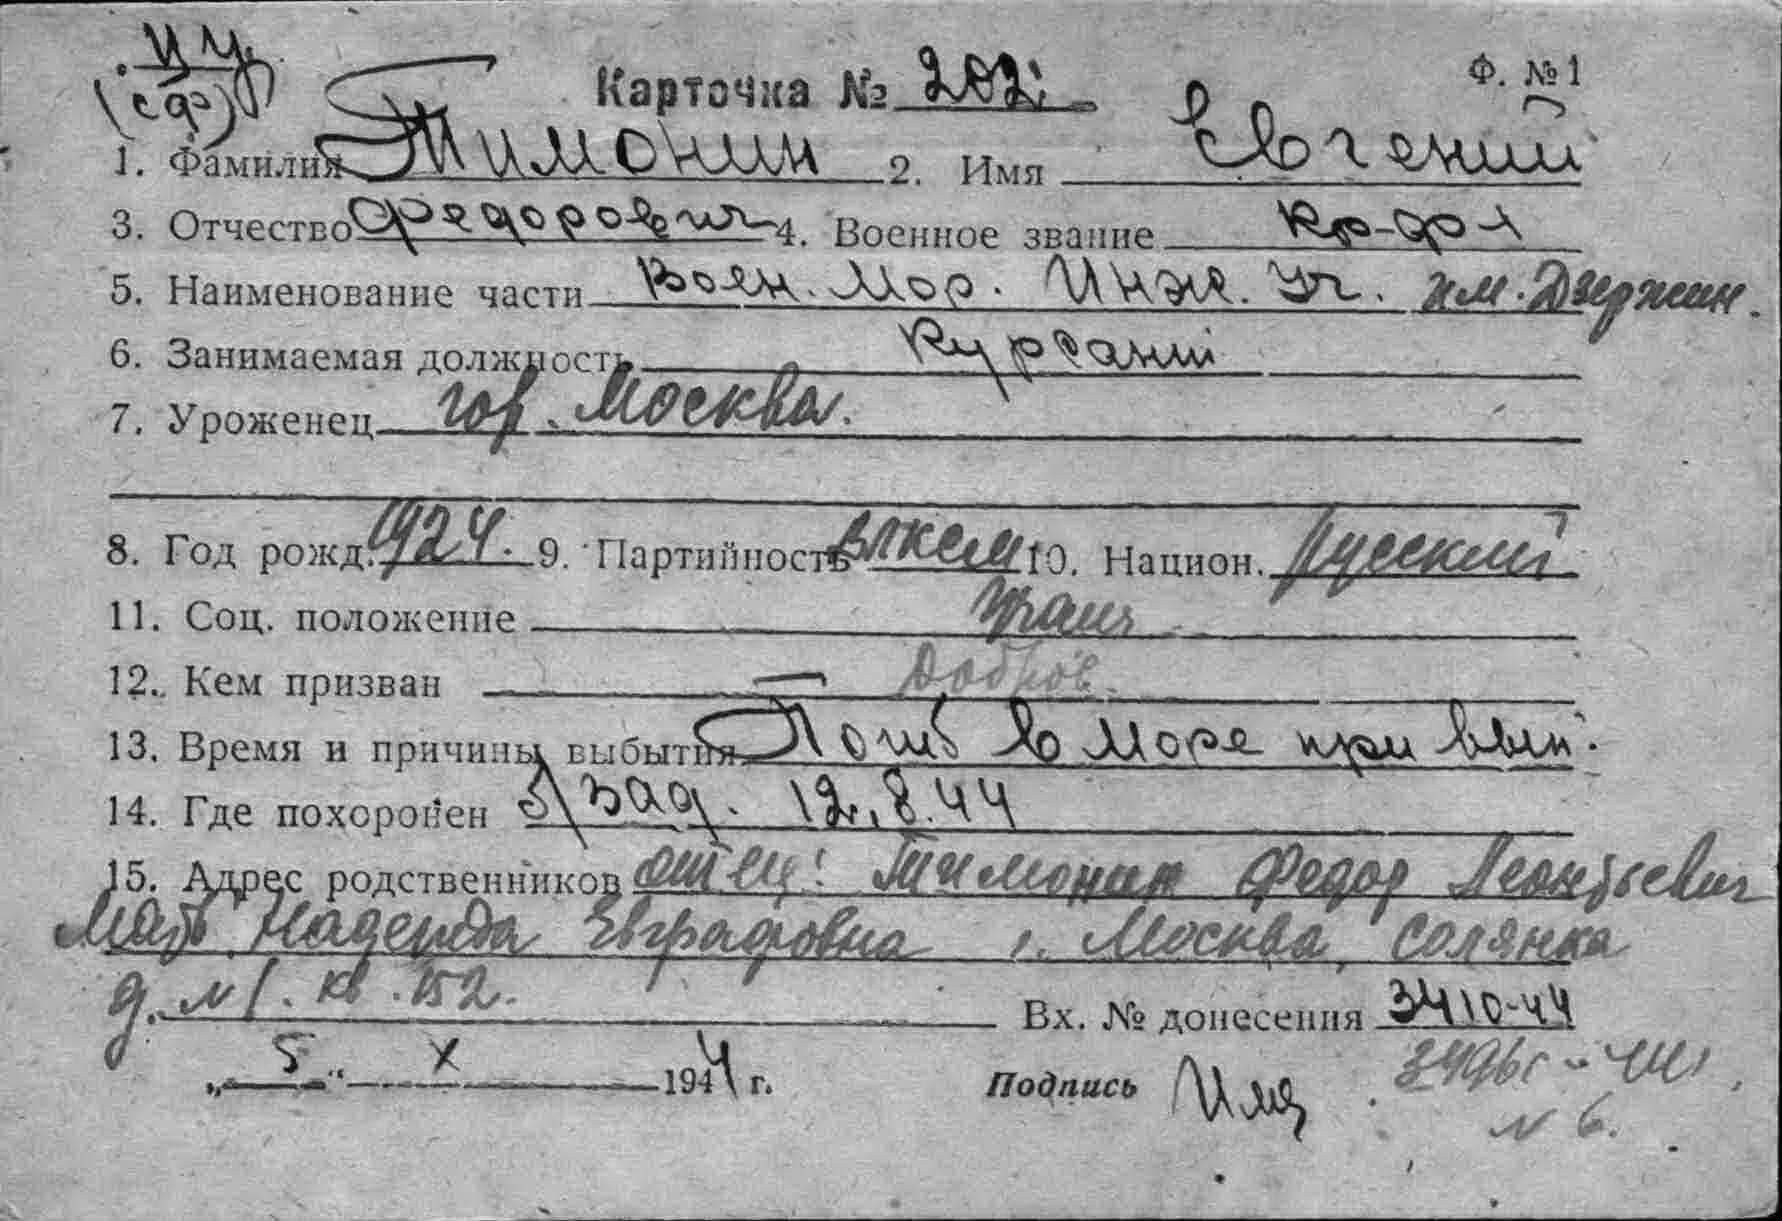 ц у.
(сф)
Карточка № 202 Ф. №1
1. Фамилия Тимонин 2. Имя Евгений
3. Отчество Федорович 4. Военное звание кр-фл
5. Наименование части Воен. Мор. Инж. Уч. им. Дзержин.
6. Занимаемая должность Курсант
7. Уроженец гор. Москва.
8. Год рожд. 1924. 9. Партийность ВЛКСМ 10. Национ. Русский
11. Соц. положение
12. Кем призван Добров.
13. Время и причины выбытия Погиб в море при вып.
14. Где похоронен б/зад. 12.8.44
15. Адрес родственников отец: Тимонин Федор Леонтьевич
Мать Надежда Евграфовна г. Москва, Солянка
д. № 1. кв. 152.
Вх. № донесения 3410-44
„5“ X 1944 г. Подпись
№ 6.